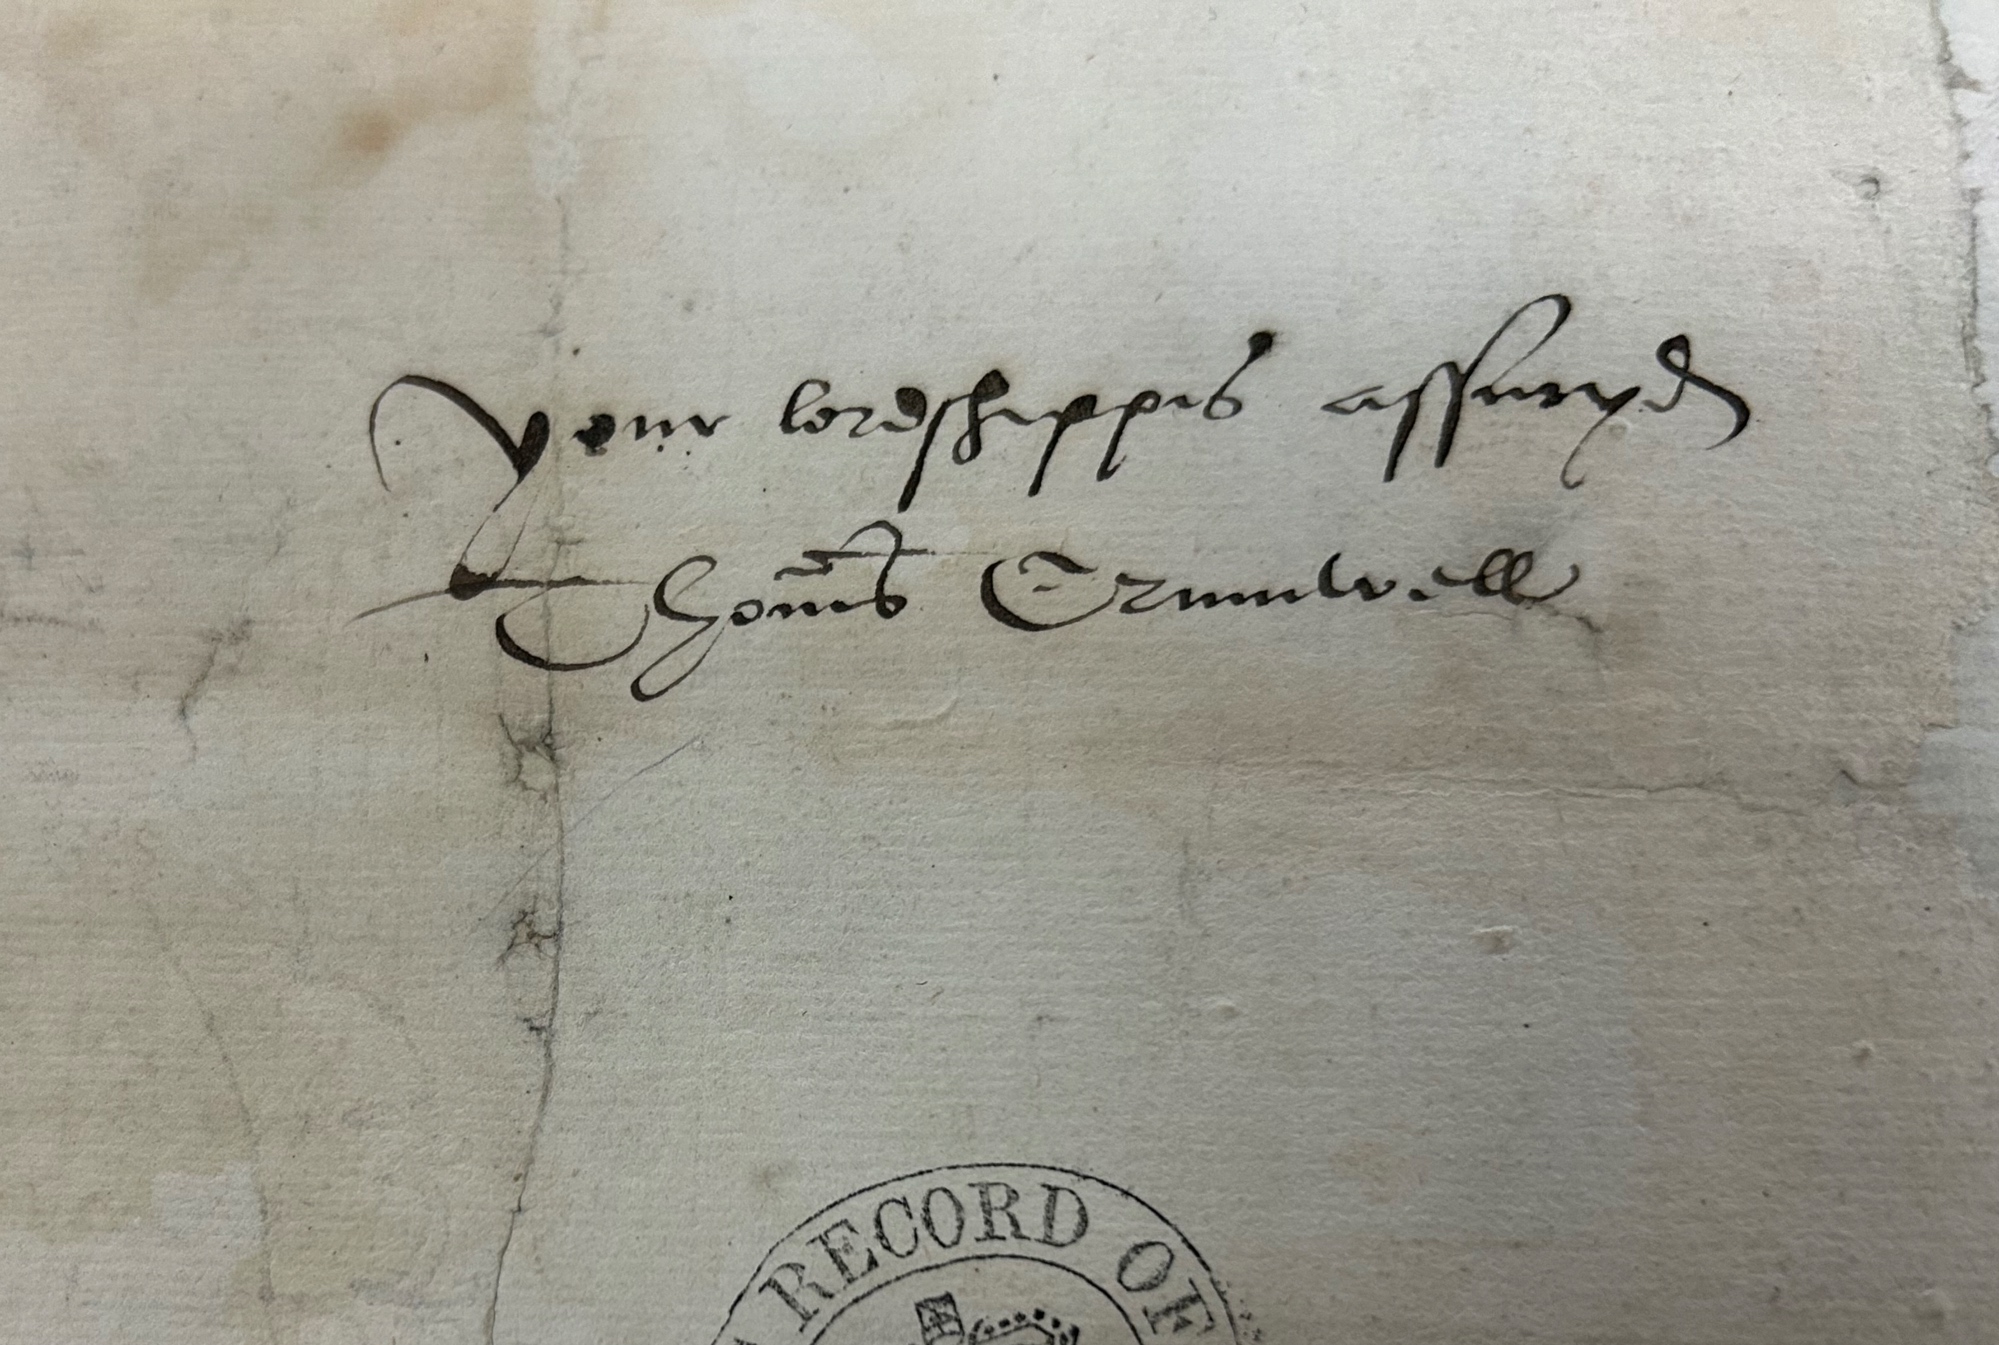 your lordshippis assuryd
Thomas Crumwell
RECORD OF